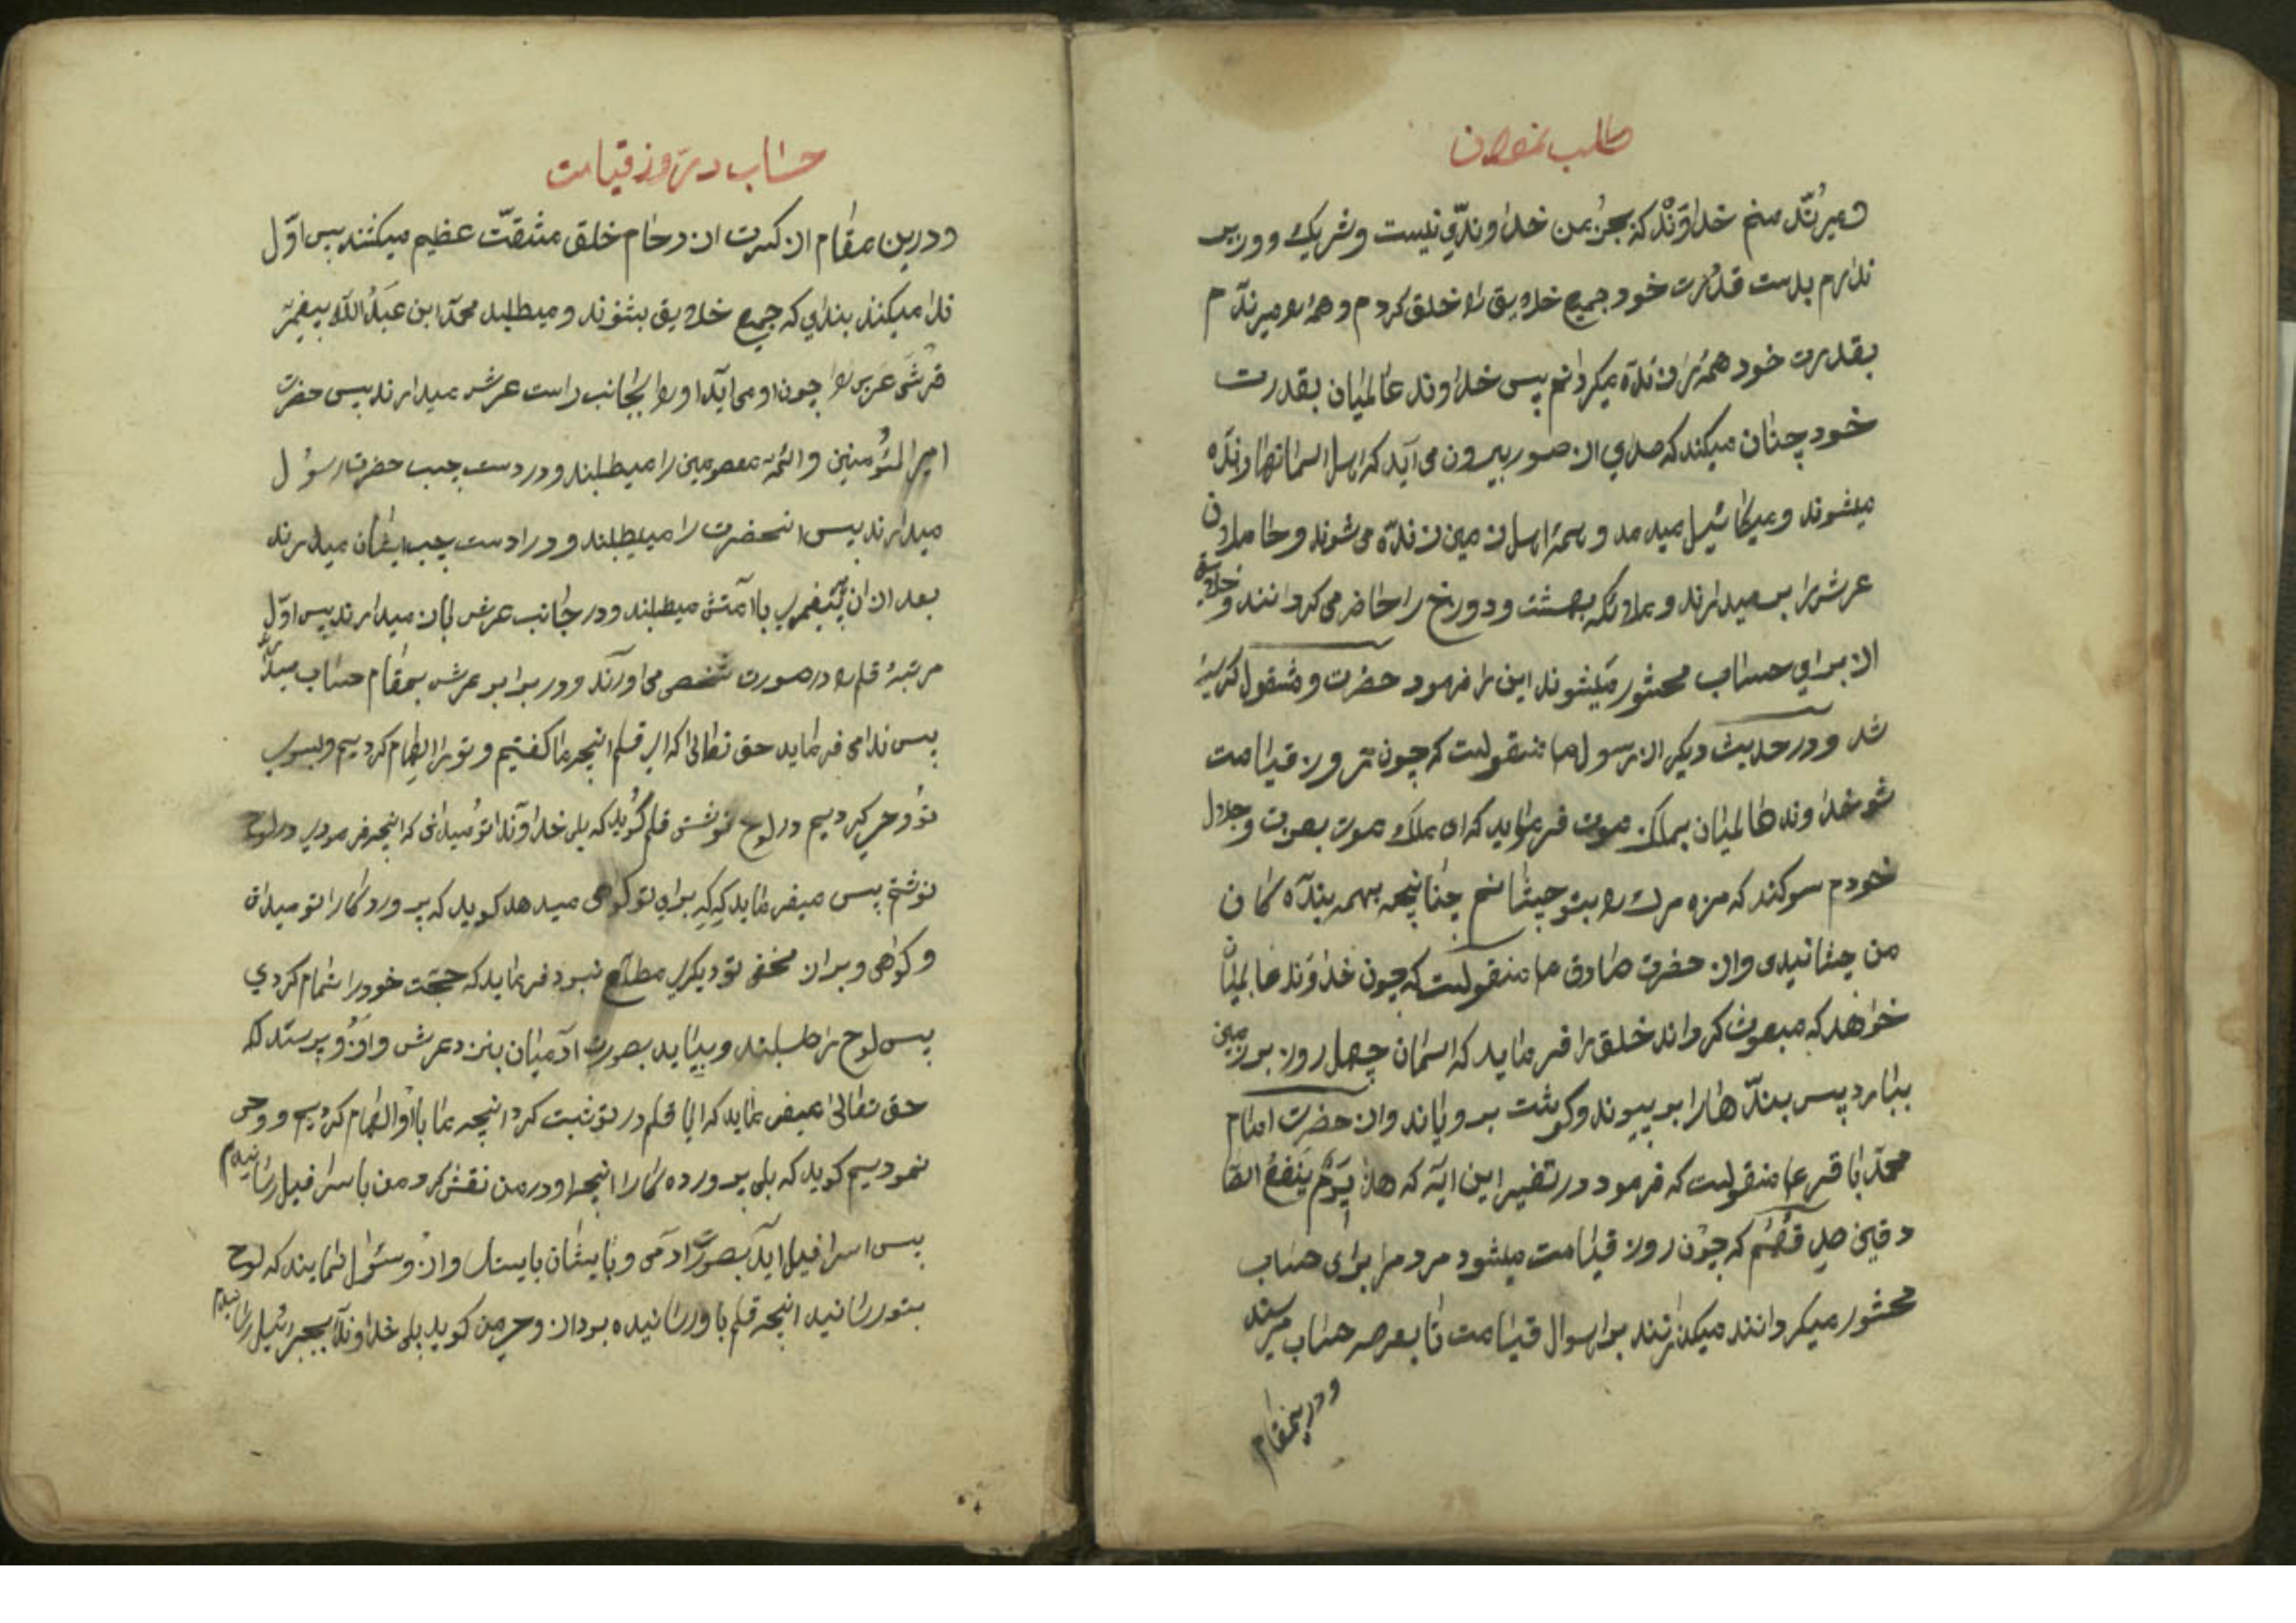 طلب نمودن
و میرنَّد منم خداوَندْ که بجز من خداوندی نیست و شریک و وزیر
ندارم بدست قدرت خود جمیع خلایق را خلق کردم و همه را میرندم
بقدرت خود همه را زنده میکردانم پس خداوند عالمیان بقدرت
خود چنان میکند که صدای از صور بیرون می آید که اهل اسمانها زنده
میشوند و میکائیل میدمد و همه اهل زمین زنده می شوند و حاملان
عرش را بر میدارند و ملائکه بهشت و دوزخ را حاضر می کردانند و خلایق
از برای حساب محشور میشوند این را فرمود حضرت و مشغول کریه
شد و در حدیث دیکر از رسول ص منقولست که چون روز قیامت
شو خداوند عالمیان بملک موت فرماید که ای ملک موت بعزت و جلال
خودم سوکند که مزه مرک را بتو چشانم چنانچه بهمه بنده کان
من چشانیدی و از حضرت صادق ع منقولست که چون خداوند عالمیان
خواهد که مبعوث کرداند خلق را فرماید که اسمان چهل روز بر زمین
ببارد پس بندها را بر پیوند و کوشت بر ویاند و از حضرت امام
محمد باقر ع منقولست که فرمود در تفسیر این ایه که هذا یَومُ یَنفَعُ الصا
دقین صدقُهُم که چون روز قیامت میشود مردم را برای حساب
محشور میکردانند میکذرند بر اهوال قیامت تا بعرصه حساب میرسند
و درینمقام
حساب در روز قیامت
و درین مقام از کثرت ازدحام خلق مشقّت عظیم میکشند پس اوّل
ندا میکنند بندای که جمیع خلایق بشنوند و میطلبد محمد ابن عَبدُ اللّه پیغمبر
قرشی عربی را چون او می آید او را بجانب راست عرش میدارند پس حضرت
امیر المؤمنین و ائمه معصومین را میطلبند و در دست چپ حضرت رسول
میدارند پس انحضرت را میطلبند و در ادست چپ ایشان میدارند
بعد از ان پیغمبری با امتش میطلبند و در جانب عرش بان میدارند پس اوّل
مرتبه قلم را در صورت شخصی می اورند و در برابر عرش بمقام حساب میدارند
پس ندا می فرماید حق تعالی که ای قلم انچه ما کفتیم و تو را الهام کردیم و بسوی
تو وحی کردیم در لوح نوشتی قلم کوید که بلی خداوندا تو میدانی که انچه فرمودی در لوح
نوشتم پس میفرماید که کِه برای تو کواهی میدهد کوید که پروردکارا تو میدانی
و کواهی و بر ان مخفی تو دیکری مطلع نبود فرماید که حجت خود را تمام کردی
پس لوح را طلبند و بیاید بصورت ادمیان بنزد عرش و ازو پرسند که
حق تعالی میفرماید که ایا قلم در تو ثبت کرد انچه ما با او الهام کردیم و وحی
نمودیم کوید که بلی پرورده کارا انچه او در من نقش کرد من باسرافیل رسانیدم
پس اسرافیل اید بصورت ادمی و با ایشان بایستد و ازو سئوال نمایند که لوح
بتو رسانید انچه قلم باو رسانیده بود از وحی من کوید بلی خداوندا بجبرئیل رسانیدم